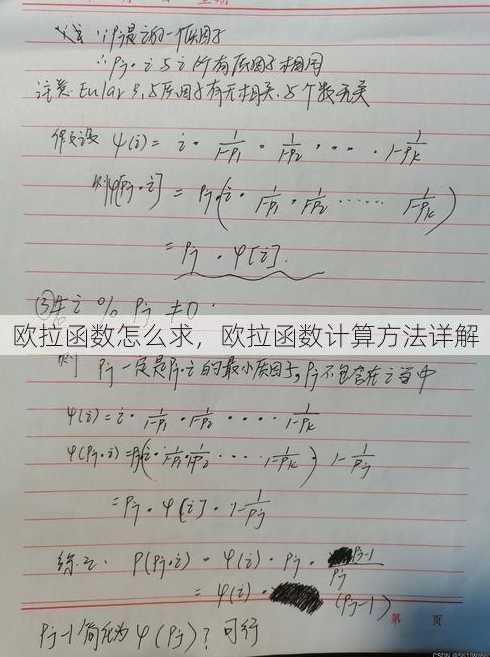 ∵ pj是i的一个质因子
∴ pj·i 与 i 所有质因子相同
注意 Eular 只与质因子有无相关,与个数无关
假设 φ(i) = i · 1-1/p1 · 1-1/p2 · ··· · 1-1/pk
则φ[pj·i] = pj·(i · 1-1/p1 · 1-1/p2 ······ 1-1/pk)
= pj · φ[i].
③若 i % pj ≠0 ·
欧拉函数怎么求，欧拉函数计算方法详解
则 pj 一定是pj·i的最小质因子,pj不包含在i当中
φ(i) = i · 1-1/p1 · 1-1/p2 · ···· 1-1/pk
φ(pj·i) = pj(i · 1-1/p1 · 1-1/p2 · ···· 1-1/pk) · 1-1/pj
= pj · φ[i] · 1-1/pj
综上: φ(pj·i) = φ(i) · pj · pj-1/pj
= φ(i) · (pj-1)
pj-1 简化为 φ(pj) ? 可行
第 页